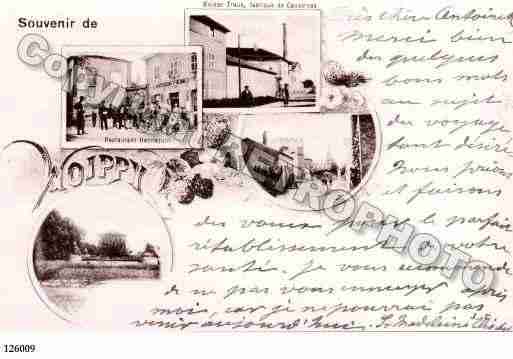 Souvenir de
Maison Traux, fabrique de Casseroles
Restaurant Hannequin
MOIPPY
Très chère Antoinette
Merci bien
de quelques
bons mots
au sujet
du voyage
tant désiré
Nous prions
et faisons
des voeux pour le parfait
rétablissement de votre
santé. Je vous
de ne pas vous ennuyer après
moi, car je ne pourrai pas
venir aujourd'hui. La Madeleine
© CARTES-POSTALES-RETROPHOTO
126009